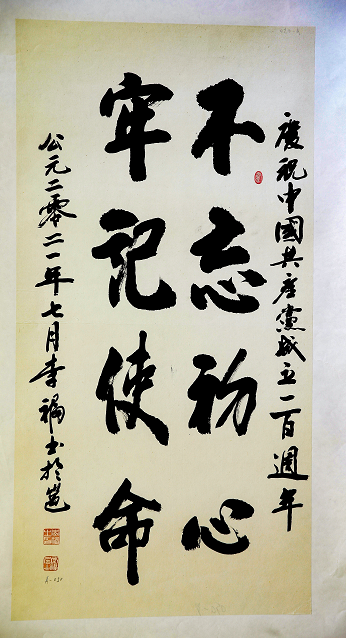 慶祝中國共産黨成立一百週年
不忘初心
牢記使命
公元二零二一年七月李福书於邕